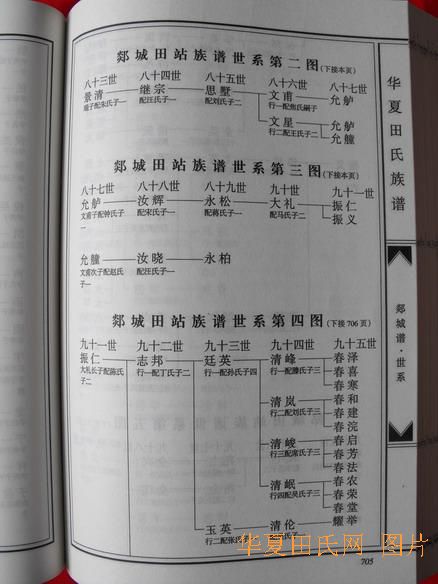 郯城田站族谱世系第二图(下接本页)
八十三世 八十四世 八十五世 八十六世 八十七世
景清 继宗 思墅 文甫 允舻
配朱氏子一 配汪氏子一 配刘氏子二 行一配焦氏嗣子
文星 允舻
行二配王氏子二 允艟
郯城田站族谱世系第三图(下接本页)
八十七世 八十八世 八十九世 九十世 九十一世
允舻 汝辉 永松 大礼 振仁
文甫子配钟氏子一 配宋氏子一 配蒋氏子一 配马氏子二 振义
允艟 汝晓 永柏
文甫次子配赵氏子一 配汪氏子一
郯城田站族谱世系第四图(下接706页)
九十一世 九十二世 九十三世 九十四世 九十五世
振仁 志邦 廷英 清峰 春泽
大礼长子配陈氏子二 行一配丁氏子二 行一配孙氏子四 行一配滕氏子三 春喜
春寒
清岚 春和
行二配刘氏子三 春建
春浣
清峻 春启
行三配席氏子三 春芳
春法
清岷 春农
行四配吴氏子三 春荣
春堂
玉英 清伦 耀举
华夏田氏族谱
郯城谱·世系
705
华夏田氏网 图片